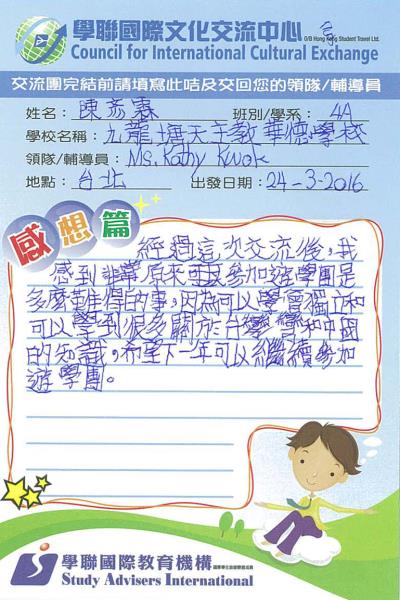 學聯國際文化交流中心
O/B Hong Kong Student Travel Ltd.
Council for International Cultural Exchange
交流團完結前請填寫此咭及交回您的領隊/輔導員
姓名: 陳彥霖 班別/學系: 4A
學校名稱: 九龍塘天主教華德學校
領隊/輔導員: Ms. Kathy Kwok
地點: 台北 出發日期: 24-3-2016
感想篇
經過這次交流後,我
感到非常原來可以參加遊學團是
多麼難得的事,因為可以學會獨立和
可以學到很多關於台灣和中國
的知識,希望下一年可以繼續參加
遊學團。
學聯國際教育機構
Study Advisers International